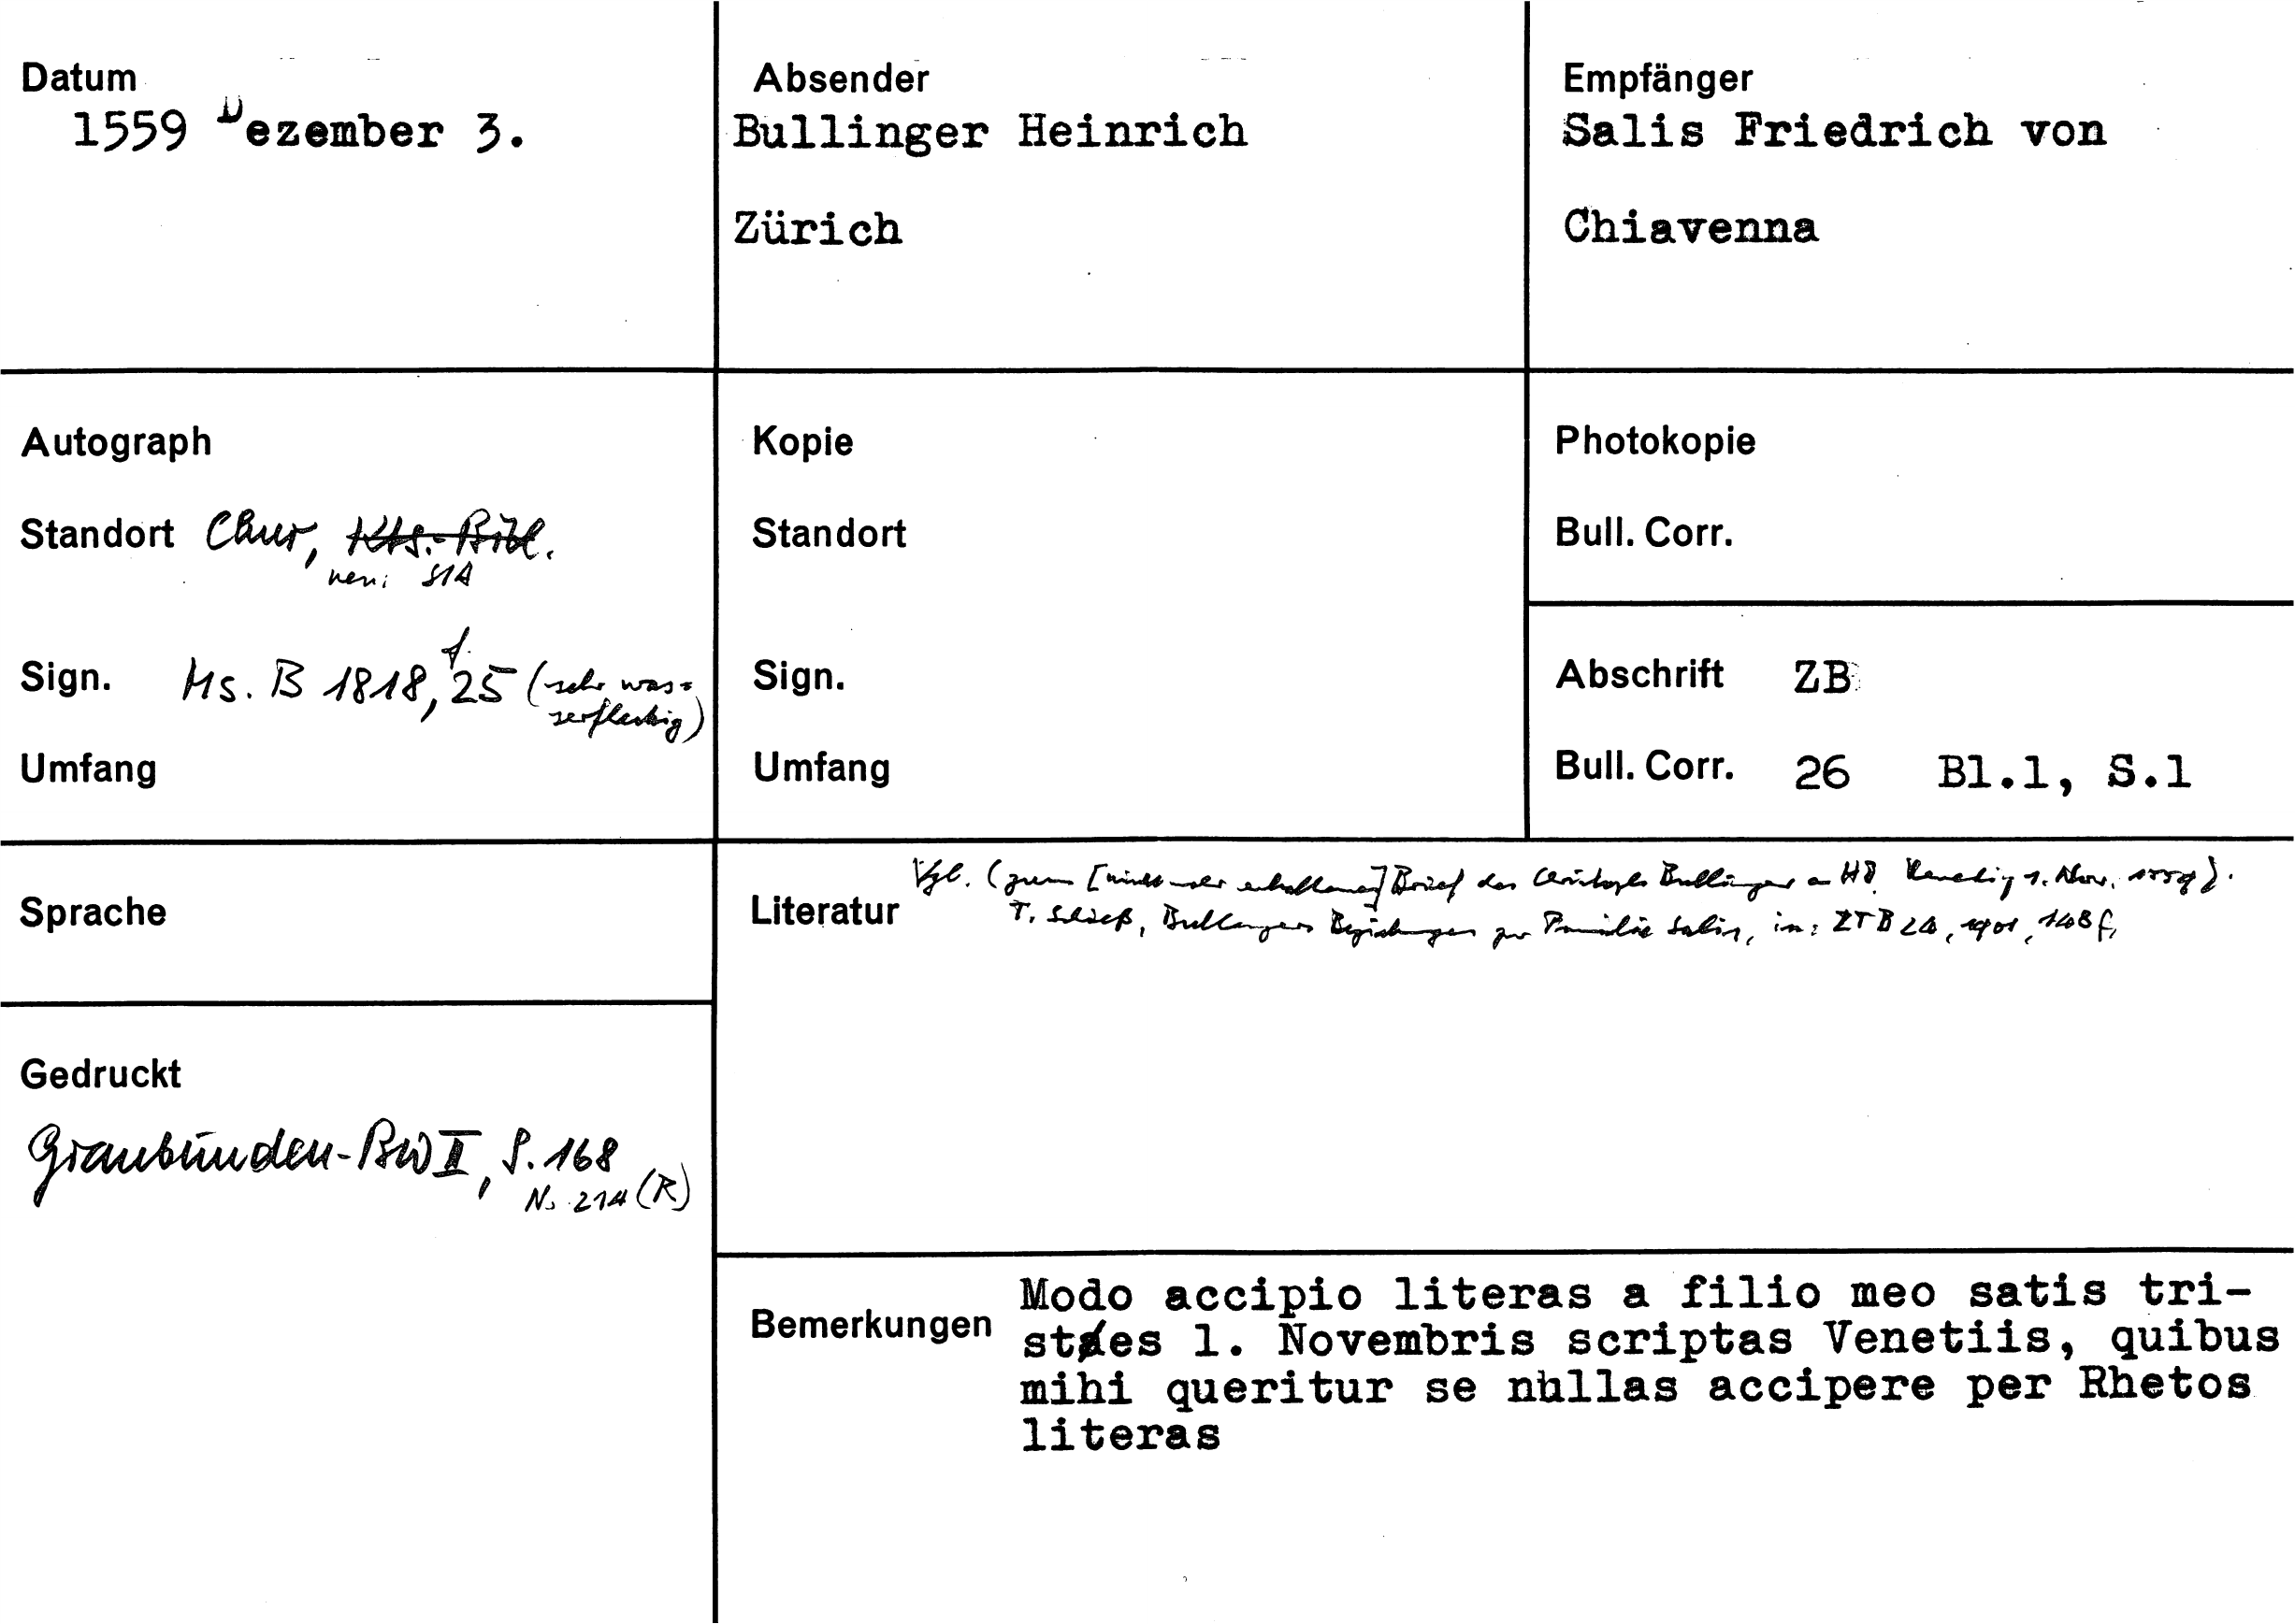 Datum
1559 Dezember 3.
Absender
Bullinger Heinrich
Zürich
Empfänger
Salis Friedrich von
Chiavenna
Autograph
Standort Chur, Kts.-Bibl.
neu: StA
Sign. Ms. B 1818, f. 25 (sehr was=
serfleckig)
Umfang
Kopie
Standort
Sign.
Umfang
Photokopie
Bull. Corr.
Abschrift ZB
Bull. Corr. 26 Bl.1, S.1
Sprache
Literatur
Vgl. (zum [nicht mehr erhaltenen] Brief des Christoph Bullinger an HB, Venedig 1. Nov. 1559).
T. Schieß, Bullingers Beziehungen zur Familie Salis, in: ZTB 24, 1901, 148 f.
Gedruckt
Graubünden-BW II, S. 168
Nr. 214 (R)
Bemerkungen
Modo accipio literas a filio meo satis tri-
stes 1. Novembris scriptas Venetiis, quibus
mihi queritur se nullas accipere per Rhetos
literas